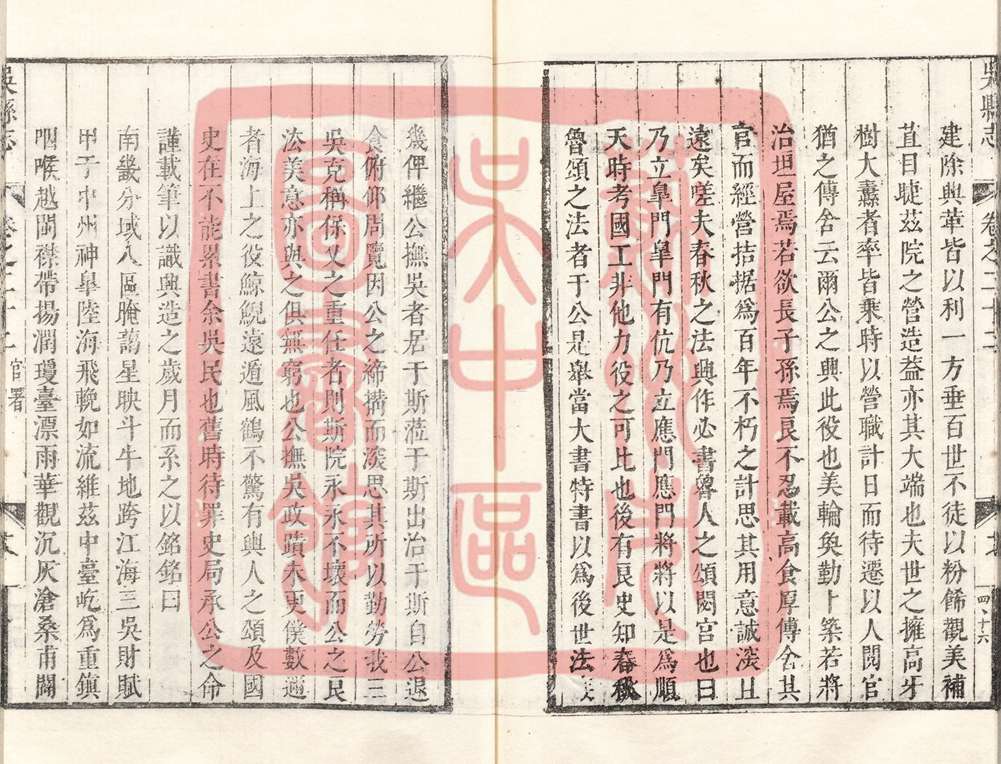 吳縣志
卷之二十二
四十六
建除與革皆以利一方垂百世不徒以粉餙觀美補
苴目睫茲院之營造葢亦其大端也夫世之擁高牙
樹大纛者率皆乗時以營職計日而待遷以人閱官
猶之傳舍云爾公之興此役也美輪奐勤卜築若將
治垣屋焉若欲長子孫焉良不忍載高食厚傳舍其
官而經營拮据爲百年不朽之計思其用意誠深且
遠矣嗟夫春秋之法興作必書魯人之頌閟宫也曰
乃立皐門皐門有伉乃立應門應門將將以是爲順
天時考國工非他力役之可比也後有良史知春秋
魯頌之法者于公是舉當大書特書以爲後世法
幾俾繼公撫吳者居于斯蒞于斯出治于斯自公退
食俯仰周覽因公之締搆而深思其所以勤勞我三
吳克稱保乂之重任者則斯院永永不壞而公之良
法美意亦與之俱無窮也公撫吳政蹟未更僕數適
者海上之役鯨鯢遠遁風鶴不驚有興人之頌及國
史在不能累書余吳民也舊時待罪史局承公之命
謹載筆以識興造之歲月而系之以銘銘曰
南畿分域八區腌藹星映斗牛地跨江海三吳財賦
甲于中州神皐陸海飛輓如流維茲中臺屹爲重鎮
咽喉越閩襟帶揚潤瓊臺漂雨華觀沉灰滄桑甫闢
吳縣志
卷之二十二
官署
蘇州
吳中區
圖書館